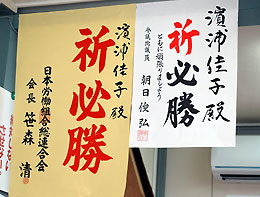 濱浦佳子殿
祈必勝
ともに頑張りましょう
参議院議員
朝日俊弘
濱浦佳子殿
祈必勝
日本労働組合総連合会
会長 笹森 清